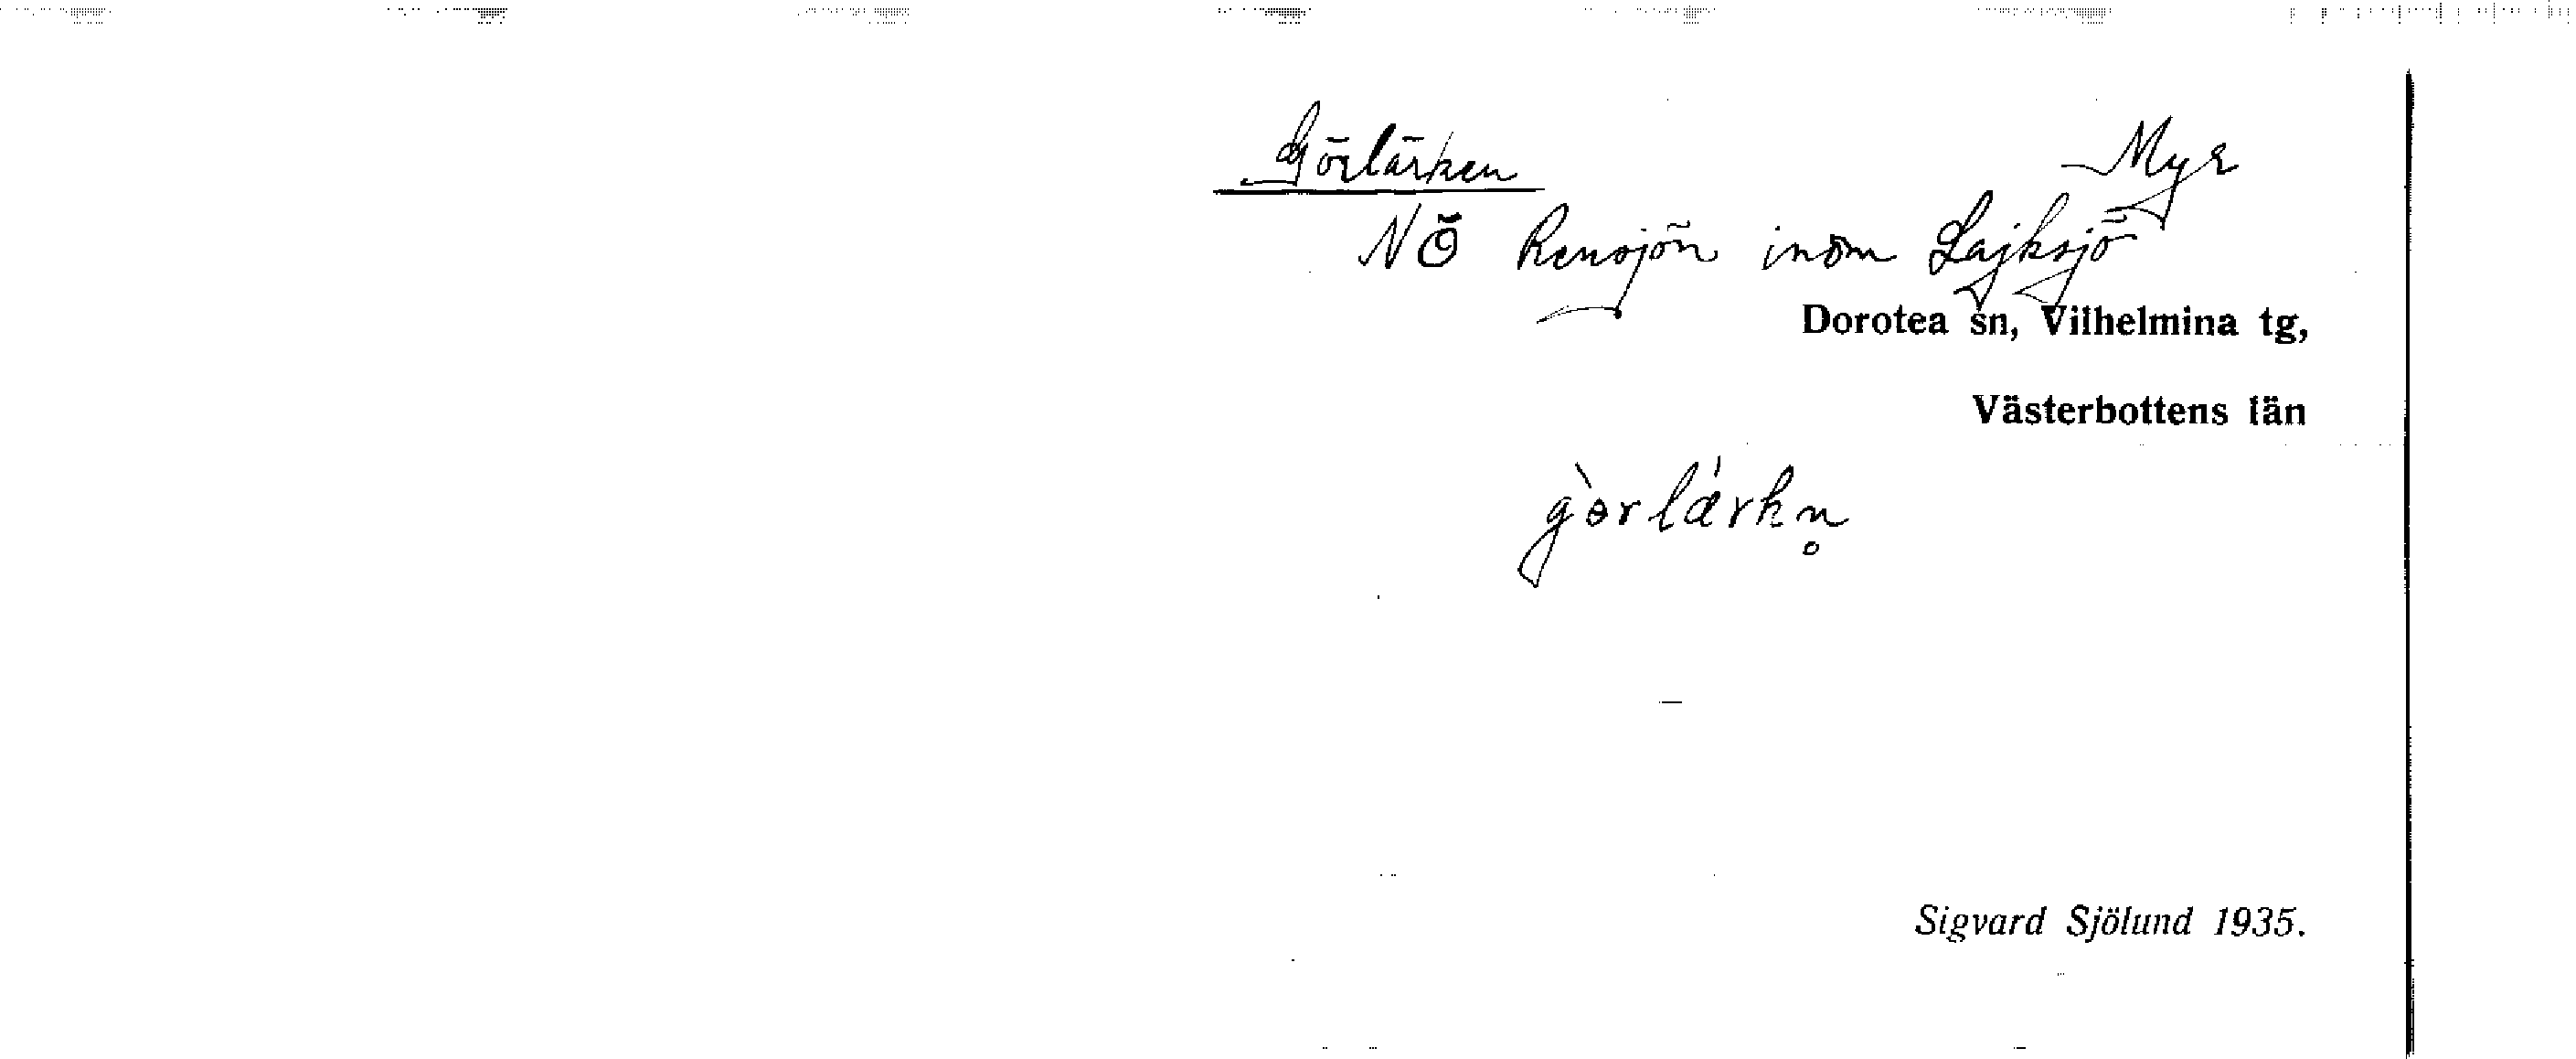 Görlärken Myr
NÖ Rensjön inom Lajksjö
Dorotea sn, Vilhelmina tg,
Västerbottens län
gòrlárkn̥
Sigvard Sjölund 1935.